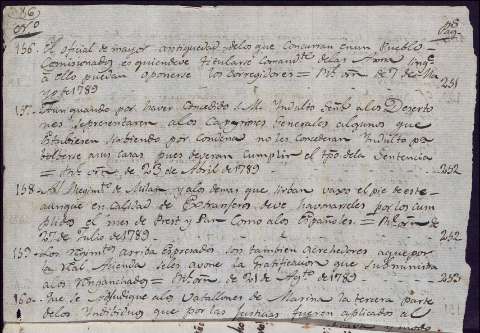 86
Nº Pag.
156. El oficial de mayor antiguedad delos que Concurran en un Pueblo
Comisionados es quien deve titularse Comandte delas Armas sin qe
a ello puedan oponerse los Corregidores = Rl orn de 7 de Ma
yo de 1789 251
157. Aun quando por haver Concedido S. M. Indulto Genl alos Deserto
res se presentaren alos Capitanes Generales algunos que
estubiesen sirviendo por Condena no les Concederan Indulto pa
bolverse a sus Casas pues deveran Cumplir el tpo de la Sentencia
= Rl orn de 23 de Abril de 1789 252
158. Al Regimto de Milan y alos demas que sirvan vajo el pie de este
aunque en Calidad de Extranjeros deve havonarseles por los cum
plidos el mes de Prest y Pan Como alos Españoles = Rl orn de
27 de Julio de 1789 252
159. Los Regimtos arriba Expresados son tambien acrehedores a que por
la Real Hacienda seles avone la Gratificacion que subministra
a los Reganchados = Rl orn de 21 de Agto de 1789 253
160. Que se Aplique alos Vatallones de Marina la tercera Parte
de los Individuos que por las Justicias fueren aplicados al